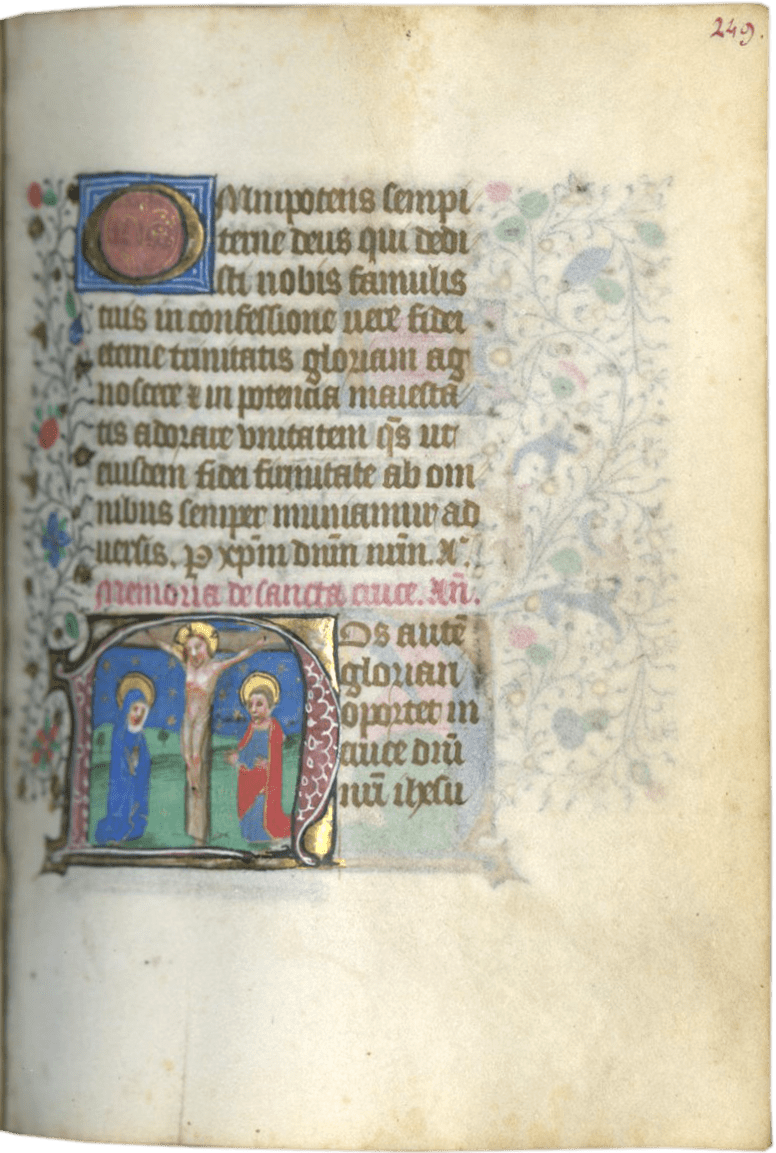 249.
Omnipotens sempi
terne deus qui dedi
sti nobis famulis
tuis in confessione vere fidei
eterne trinitatis gloriam ag
noscere ⁊ in potencia maiesta
tis adorare vnitatem q̄s ut
eiusdem fidei firmitate ab om
nibus semper muniamur ad
uersis. P xp̄m dn̄m nr̄m. A.
Memoria de sancta cruce. An̄.
Nos autē
glorian
oportet in
cruce dn̄i
nr̄i ihesu